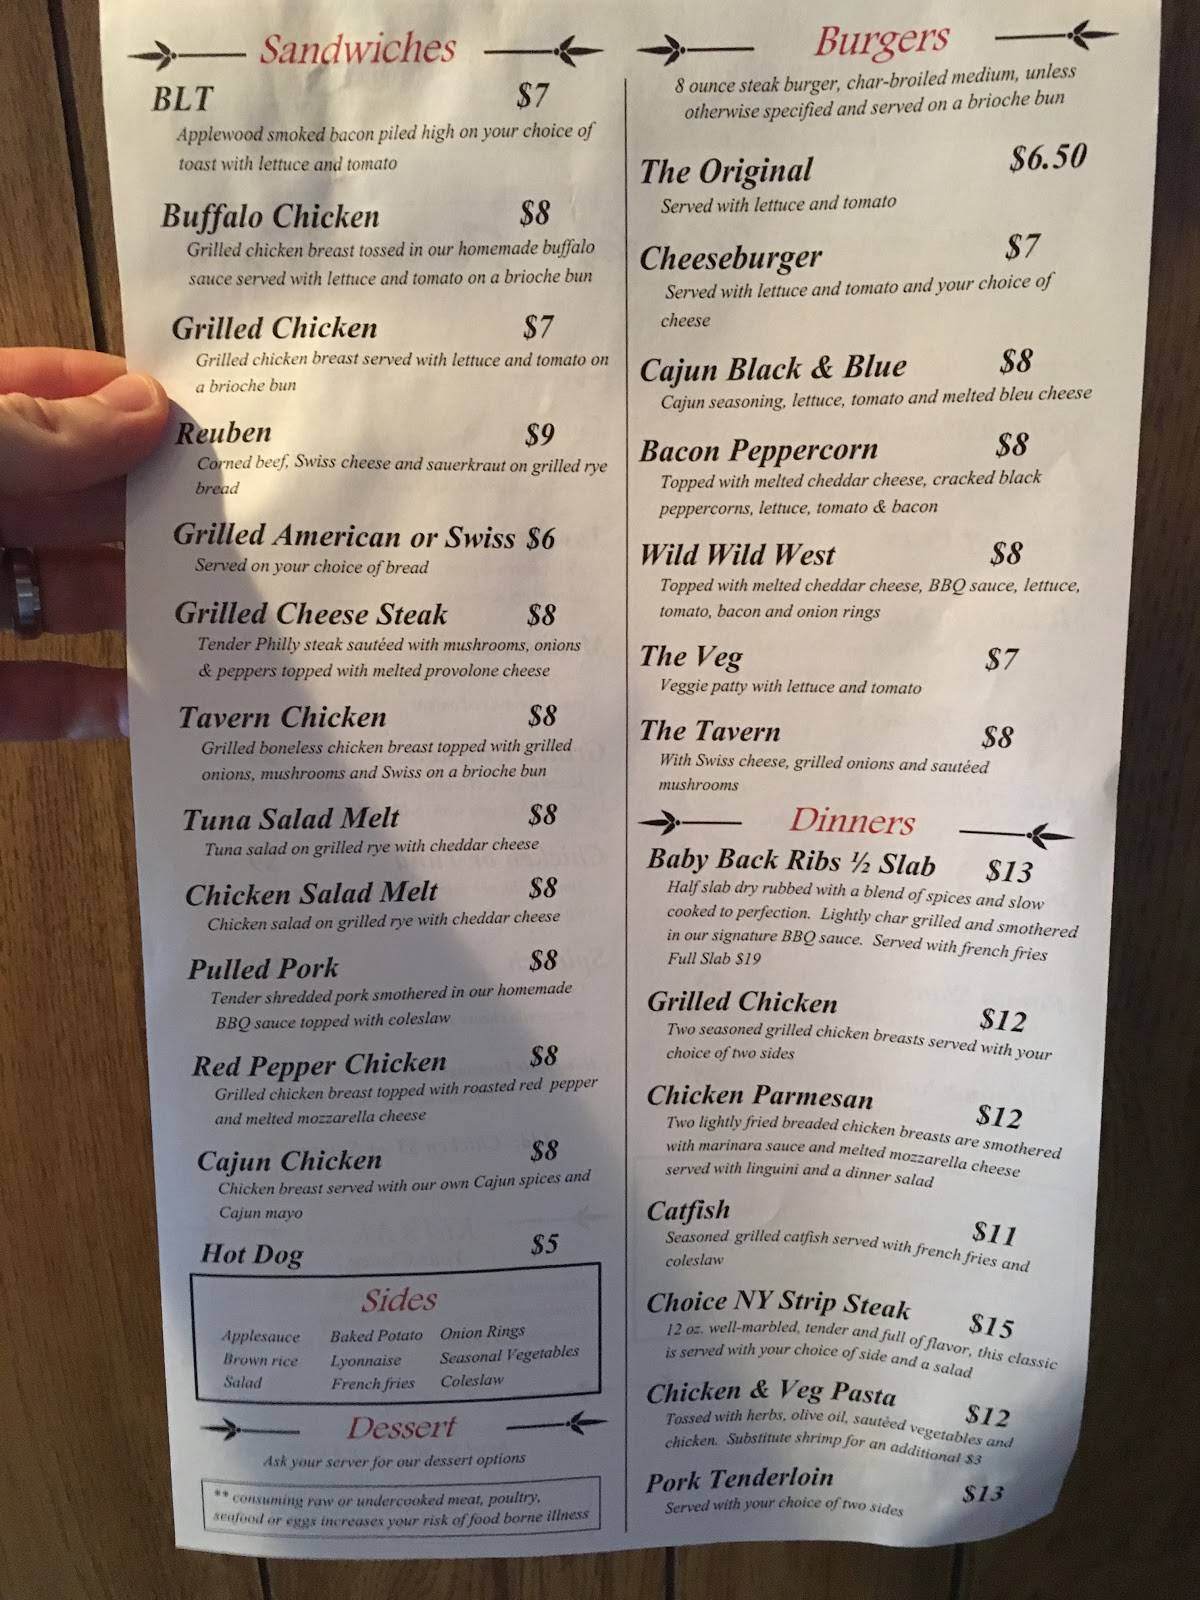 Sandwiches
BLT $7
Applewood smoked bacon piled high on your choice of
toast with lettuce and tomato
Buffalo Chicken $8
Grilled chicken breast tossed in our homemade buffalo
sauce served with lettuce and tomato on a brioche bun
Grilled Chicken $7
Grilled chicken breast served with lettuce and tomato on
a brioche bun
Reuben $9
Corned beef, Swiss cheese and sauerkraut on grilled rye
bread
Grilled American or Swiss $6
Served on your choice of bread
Grilled Cheese Steak $8
Tender Philly steak sautéed with mushrooms, onions
& peppers topped with melted provolone cheese
Tavern Chicken $8
Grilled boneless chicken breast topped with grilled
onions, mushrooms and Swiss on a brioche bun
Tuna Salad Melt $8
Tuna salad on grilled rye with cheddar cheese
Chicken Salad Melt $8
Chicken salad on grilled rye with cheddar cheese
Pulled Pork $8
Tender shredded pork smothered in our homemade
BBQ sauce topped with coleslaw
Red Pepper Chicken $8
Grilled chicken breast topped with roasted red pepper
and melted mozzarella cheese
Cajun Chicken $8
Chicken breast served with our own Cajun spices and
Cajun mayo
Hot Dog $5
Sides
Applesauce Baked Potato Onion Rings
Brown rice Lyonnaise Seasonal Vegetables
Salad French fries Coleslaw
Dessert
Ask your server for our dessert options
** consuming raw or undercooked meat, poultry,
seafood or eggs increases your risk of food borne illness
Burgers
8 ounce steak burger, char-broiled medium, unless
otherwise specified and served on a brioche bun
The Original $6.50
Served with lettuce and tomato
Cheeseburger $7
Served with lettuce and tomato and your choice of
cheese
Cajun Black & Blue $8
Cajun seasoning, lettuce, tomato and melted bleu cheese
Bacon Peppercorn $8
Topped with melted cheddar cheese, cracked black
peppercorns, lettuce, tomato & bacon
Wild Wild West $8
Topped with melted cheddar cheese, BBQ sauce, lettuce,
tomato, bacon and onion rings
The Veg $7
Veggie patty with lettuce and tomato
The Tavern $8
With Swiss cheese, grilled onions and sautéed
mushrooms
Dinners
Baby Back Ribs ½ Slab $13
Half slab dry rubbed with a blend of spices and slow
cooked to perfection. Lightly char grilled and smothered
in our signature BBQ sauce. Served with french fries
Full Slab $19
Grilled Chicken $12
Two seasoned grilled chicken breasts served with your
choice of two sides
Chicken Parmesan $12
Two lightly fried breaded chicken breasts are smothered
with marinara sauce and melted mozzarella cheese
served with linguini and a dinner salad
Catfish $11
Seasoned grilled catfish served with french fries and
coleslaw
Choice NY Strip Steak $15
12 oz. well-marbled, tender and full of flavor, this classic
is served with your choice of side and a salad
Chicken & Veg Pasta $12
Tossed with herbs, olive oil, sautéed vegetables and
chicken. Substitute shrimp for an additional $3
Pork Tenderloin $13
Served with your choice of two sides